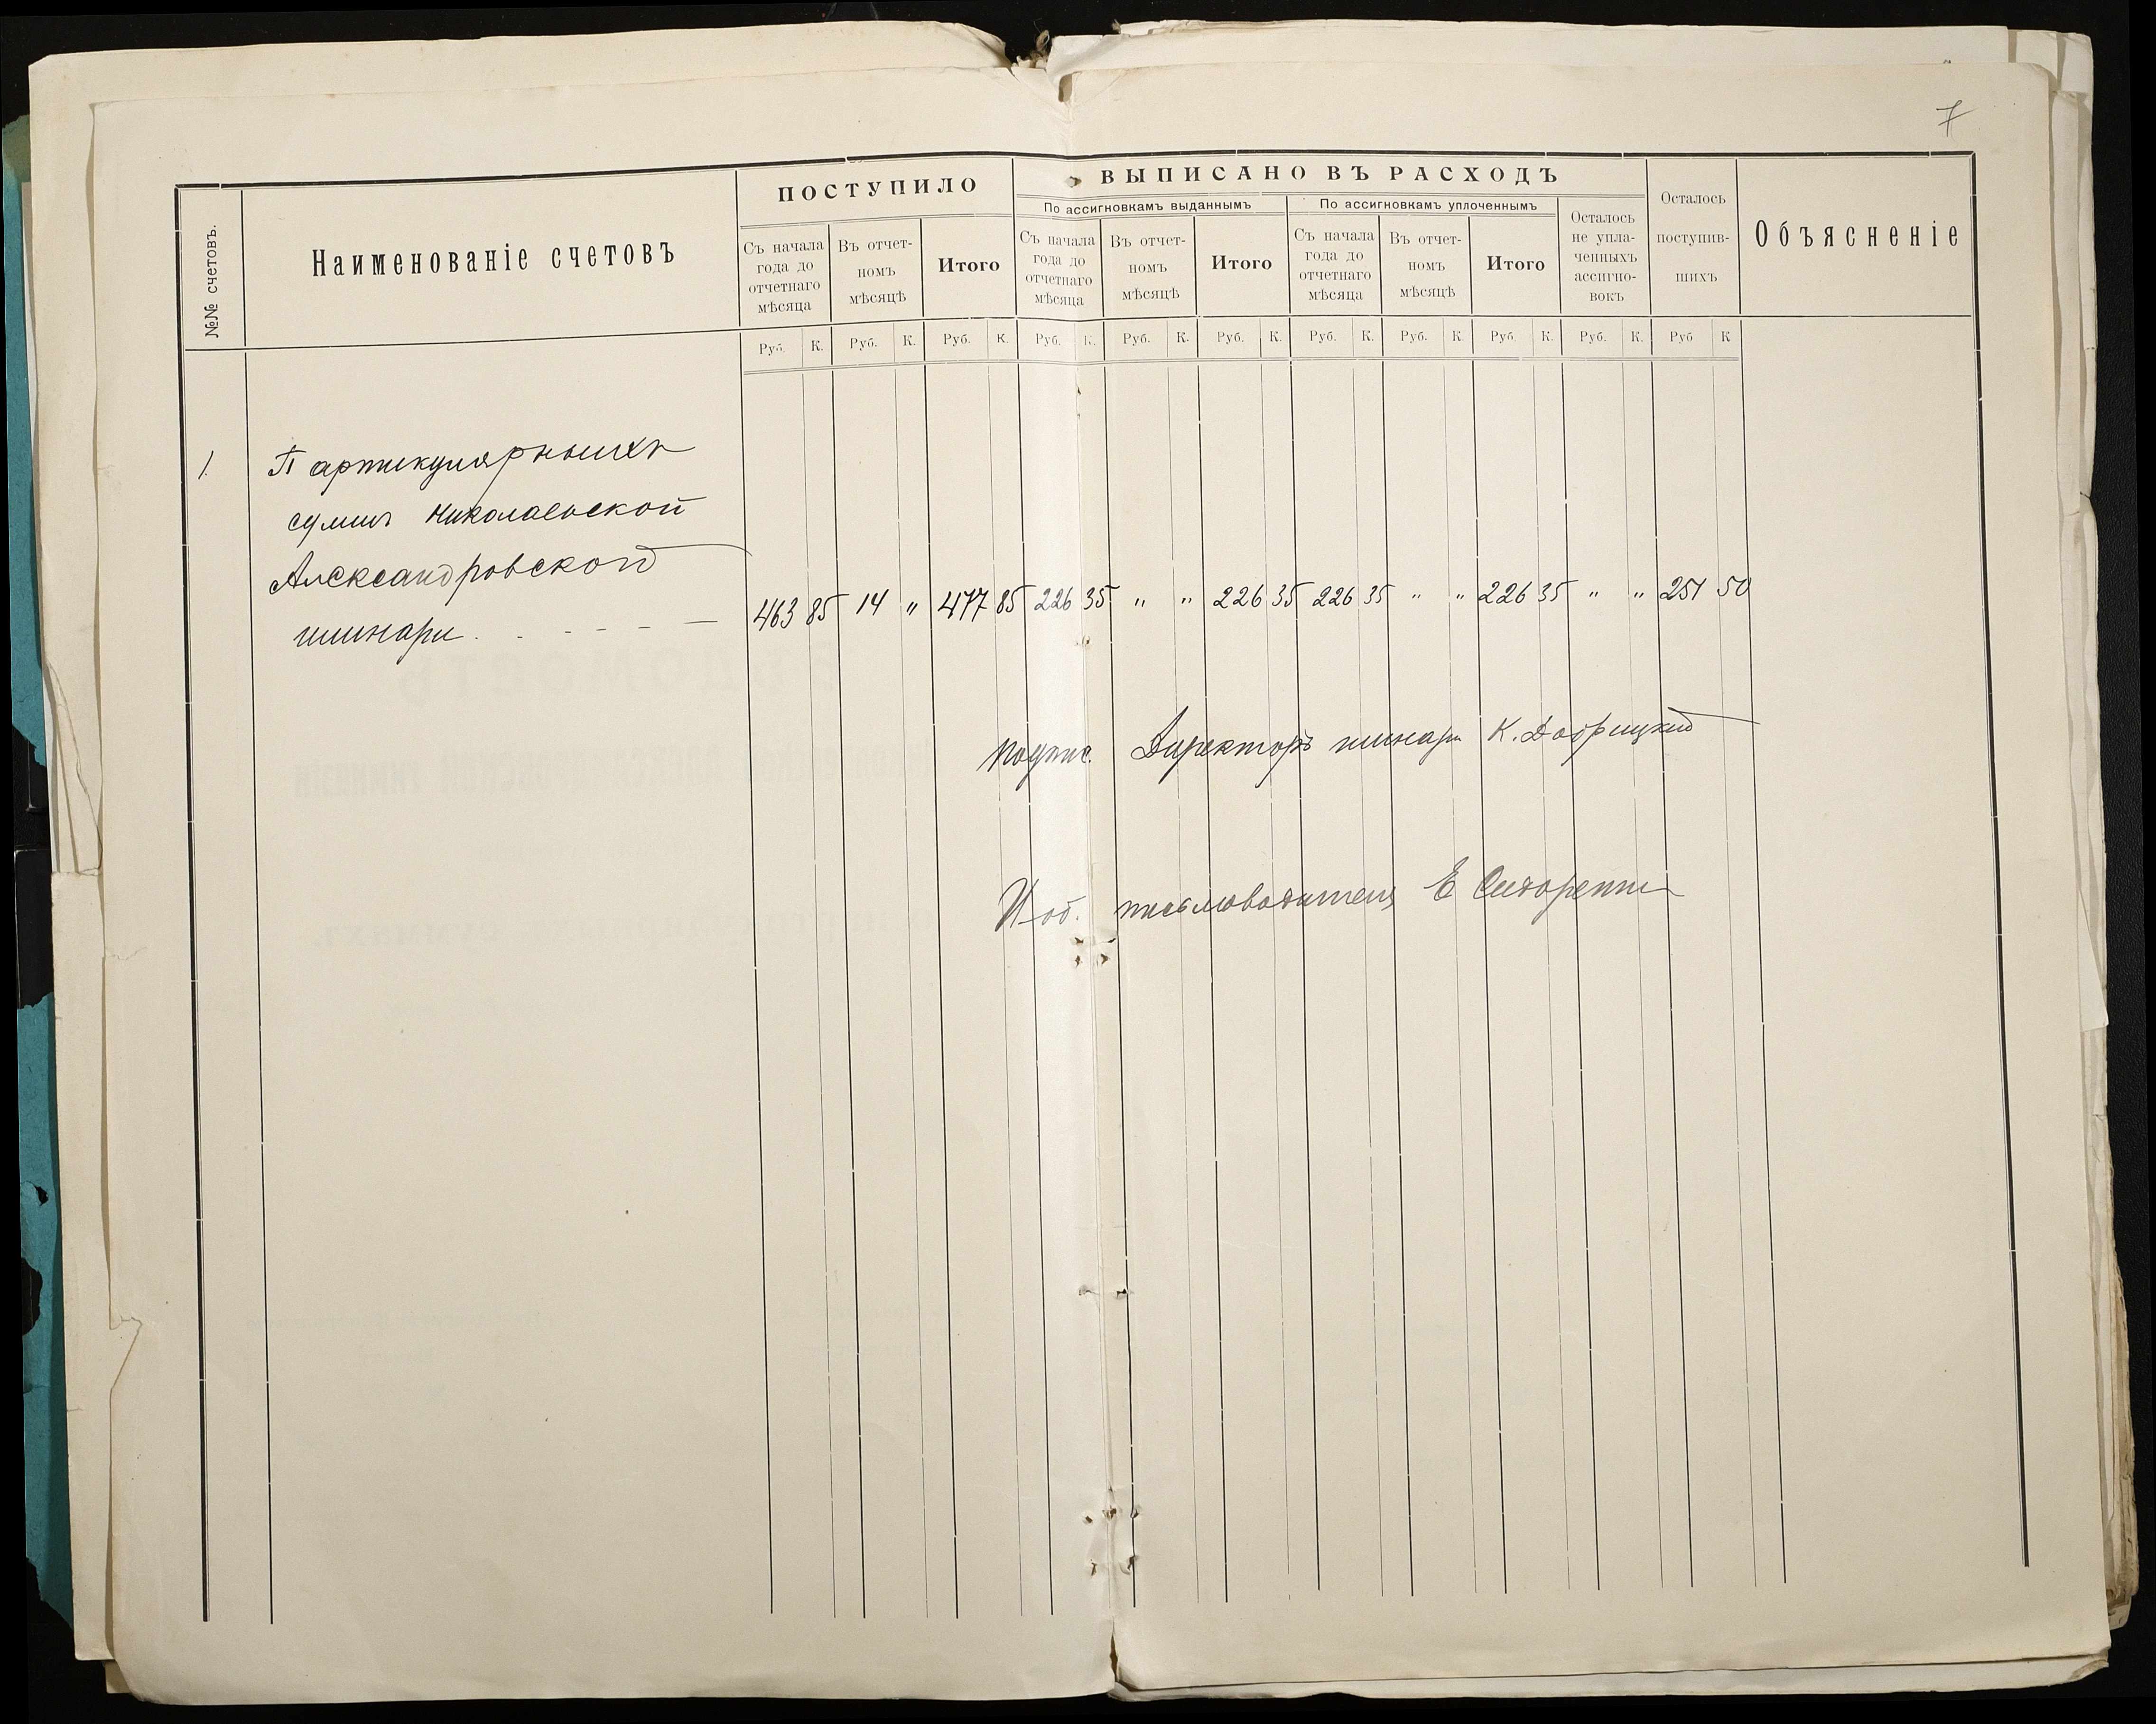 7
№№ счетовъ.
Наименованіе счетовъ
ПОСТУПИЛО
ВЫПИСАНО ВЪ РАСХОДЪ
По ассигновкамъ выданнымъ
По ассигновкамъ уплоченнымъ
Съ начала
года до
отчетнаго
мѣсяца
Въ отчет-
номъ
мѣсяцѣ
Итого
Съ начала
года до
отчетнаго
мѣсяца
Въ отчет-
номъ
мѣсяцѣ
Итого
Съ начала
года до
отчетнаго
мѣсяца
Въ отчет-
номъ
мѣсяцѣ
Итого
Осталось
не упла-
ченныхъ
ассигно-
вокъ
Осталось
поступив-
шихъ
Объясненіе
Руб. К. Руб. К. Руб. К. Руб. К. Руб. К. Руб. К. Руб. К. Руб. К. Руб. К. Руб. К. Руб К
1. Партикулярныхъ
суммъ Николаевской
Александровской
гимназіи
463 85 14 " 477 85 226 35 " " 226 35 226 35 " " 226 35 " " 251 50
подпис. Директоръ гимназіи К.
И. об. письмоводителя Е